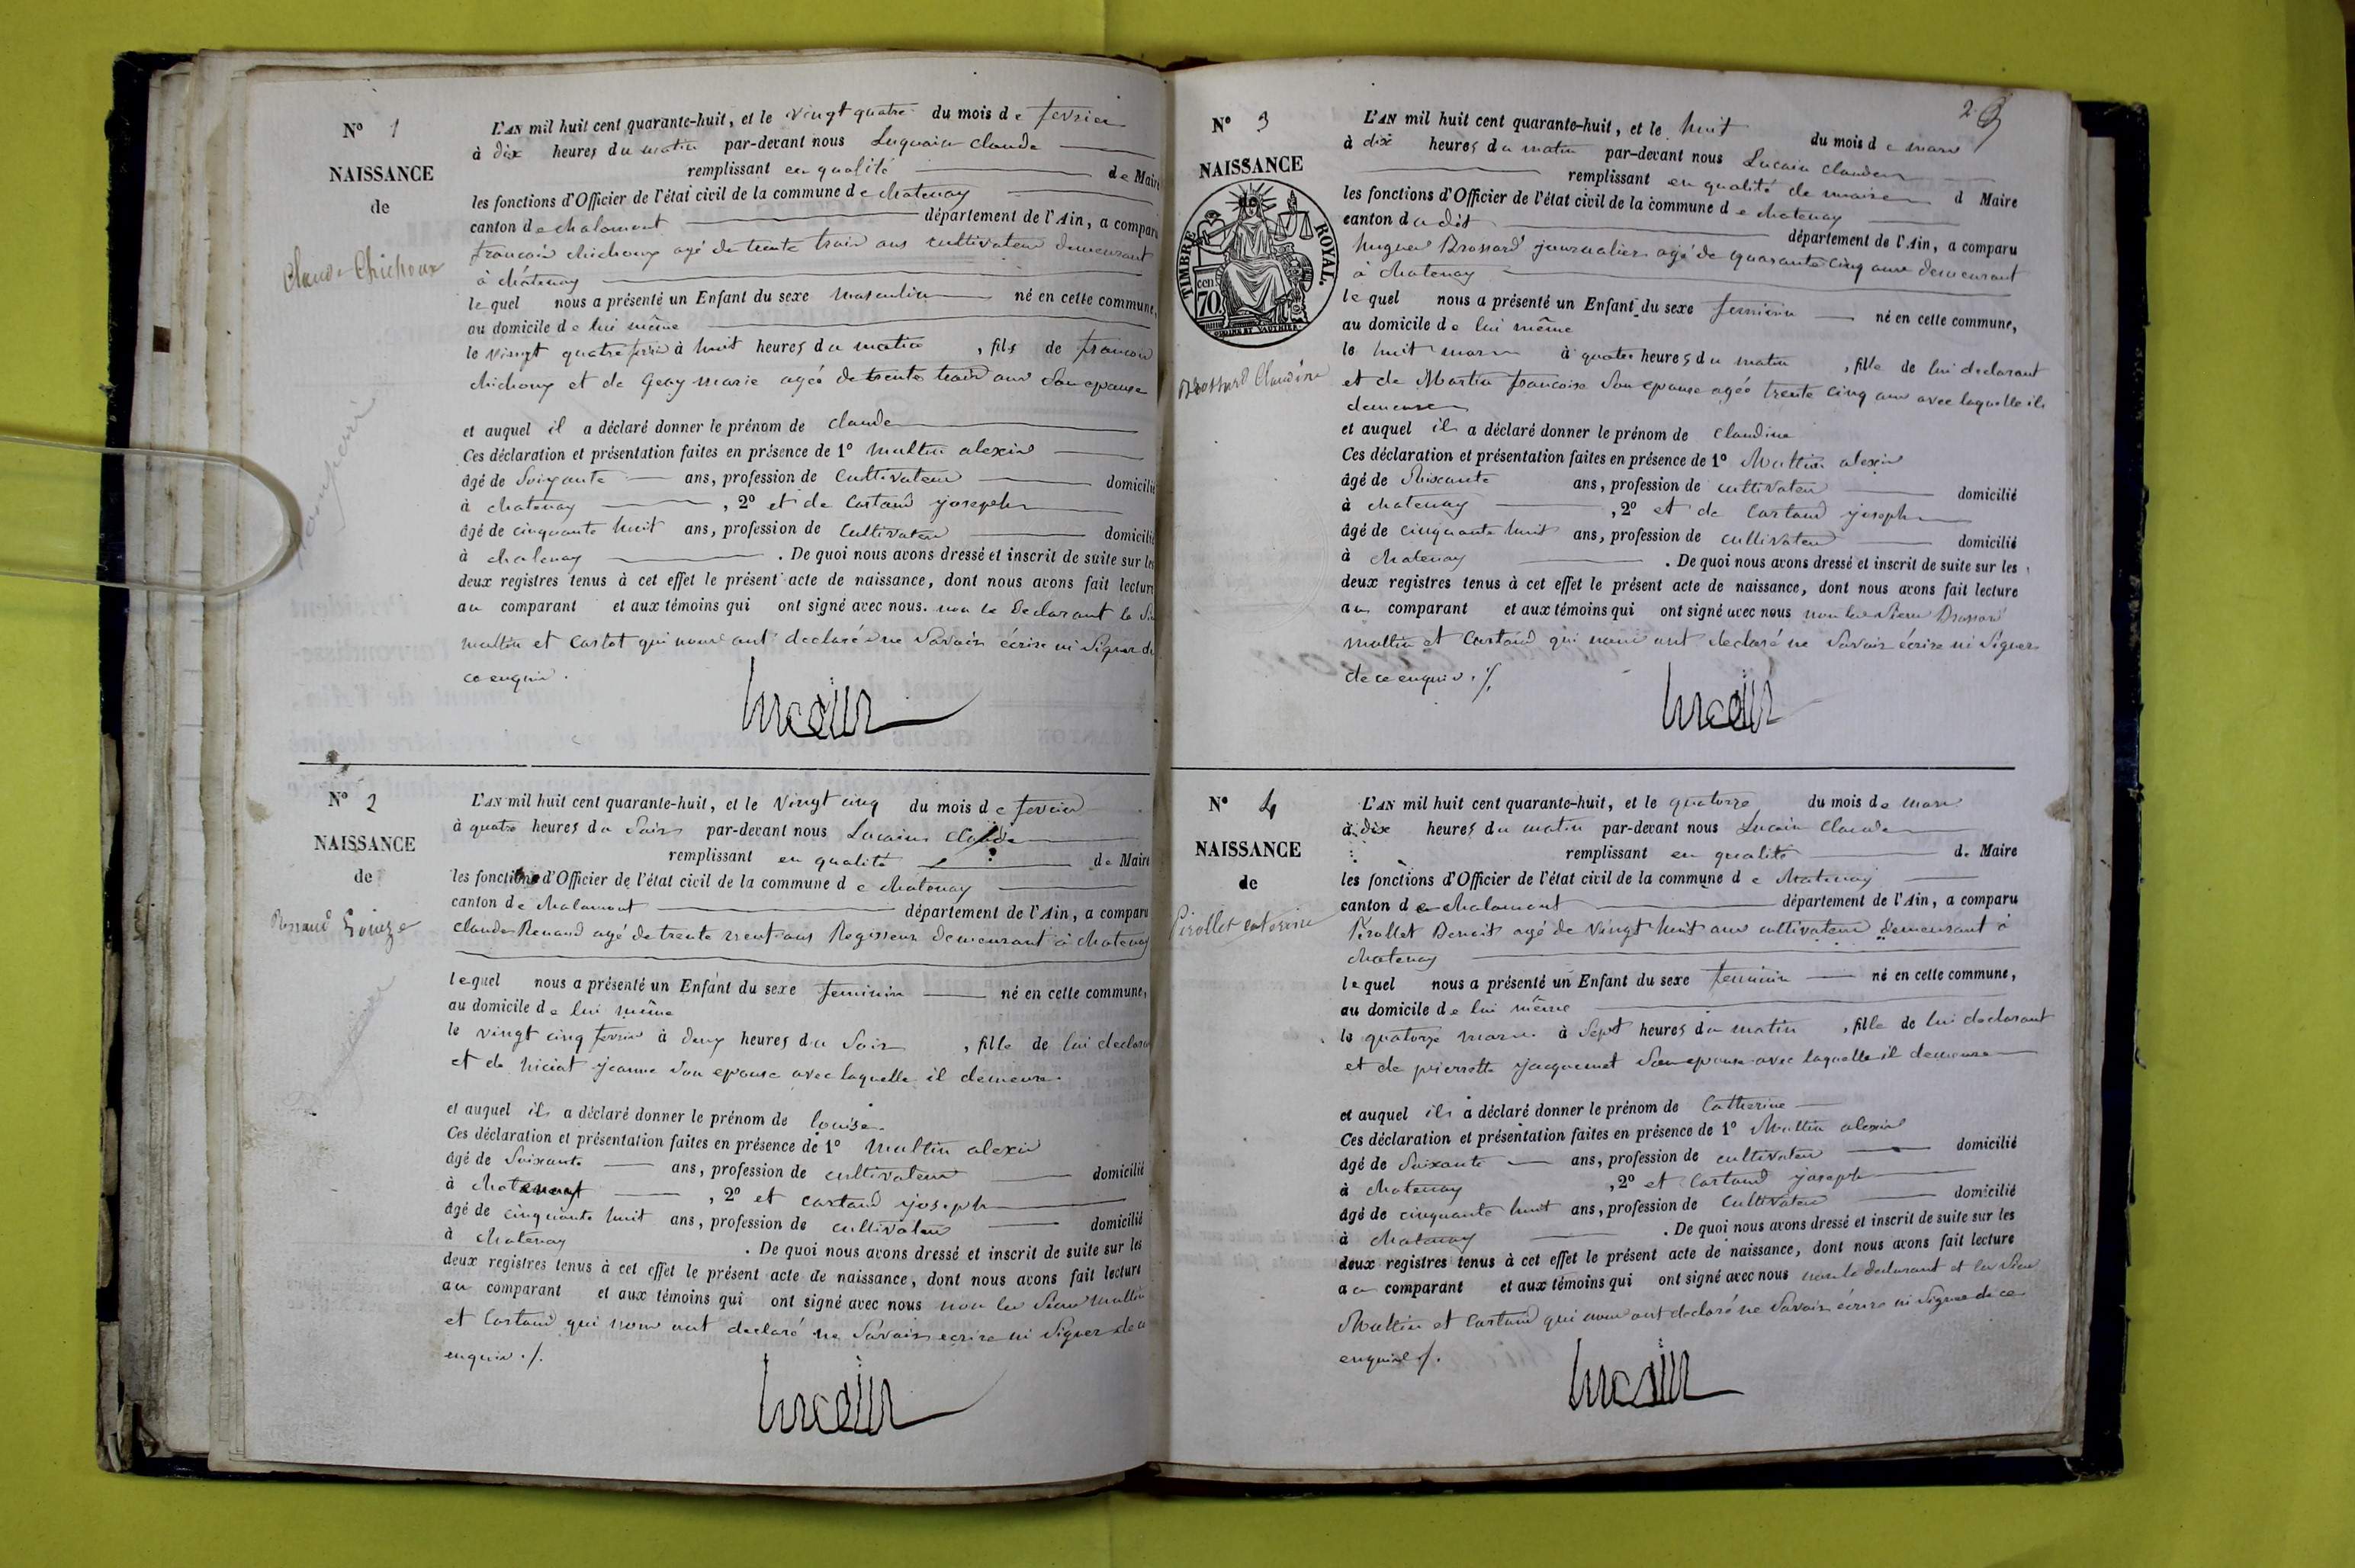 N° 1
NAISSANCE
de
Claude Chichoux
L'AN mil huit cent quarante-huit, et le vingt quatre du mois de fevrier
à dix heures du matin par-devant nous Luquain claude
remplissant en qualité de Maire
les fonctions d'Officier de l'état civil de la commune de chatenay
canton de chalamont département de l'Ain, a comparu
francois chichoux agé de trente trois ans cultivateur demeurant
à châtenay
lequel nous a présenté un Enfant du sexe masculin né en cette commune,
au domicile de lui même
le vingt quatre à huit heures du matin , fils de francois
chichoux et de Geay marie agée de trente trois ans son epouse
et auquel il a déclaré donner le prénom de claude
Ces déclaration et présentation faites en présence de 1° multin alexis
âgé de Soixante ans, profession de Cultivateur domicilié
à chatenay , 2° et de Castaud joseph
âgé de cinquante huit ans, profession de Cultivateur domicilié
à chatenay . De quoi nous avons dressé et inscrit de suite sur les
deux registres tenus à cet effet le présent acte de naissance, dont nous avons fait lecture
au comparant et aux témoins qui ont signé avec nous. non le Declarant le
multin et Castot qui nous ont declaré ne Savoir écrire ni Signer de
ce enquis.
Lucain
N° 2
NAISSANCE
de
Renaud Louise
L'AN mil huit cent quarante-huit, et le vingt cinq du mois de fevrier
à quatre heures du Soir par-devant nous Lucain claude
remplissant en qualité de Maire
les fonctions d'Officier de l'état civil de la commune de chatenay
canton de chalamont département de l'Ain, a comparu
claude Renaud agé de trente neuf ans Regisseur demeurant à chatenay
lequel nous a présenté un Enfant du sexe feminin né en cette commune,
au domicile de lui même
le vingt cinq fevrier à deux heures du Soir , fille de lui declarant
et de niciat jeanne son epouse avec laquelle il demeure.
et auquel il a déclaré donner le prénom de louise
Ces déclaration et présentation faites en présence de 1° multin alexis
âgé de Soixante ans, profession de cultivateur domicilié
à chatenay , 2° et castaud joseph
âgé de cinquante huit ans, profession de cultivateur domicilié
à chatenay . De quoi nous avons dressé et inscrit de suite sur les
deux registres tenus à cet effet le présent acte de naissance, dont nous avons fait lecture
au comparant et aux témoins qui ont signé avec nous non les Sieurs Multin
et Castaud qui nous ont declaré ne Savoir ecrire ni Signer de ce
enquis ./.
Lucain
2
N° 3
NAISSANCE
de
TIMBRE ROYAL.
cen 70
Brossard Claudine
L'AN mil huit cent quarante-huit, et le huit du mois de mars
à dix heures du matin par-devant nous Lucain Claude
remplissant en qualité de maire d Maire
les fonctions d'Officier de l'état civil de la commune de chatenay
canton du dit département de l'Ain, a comparu
hugues Brossard journalier agé de quarante cinq ans demeurant
à chatenay
lequel nous a présenté un Enfant du sexe feminin né en cette commune,
au domicile de lui même
le huit mars à quatre heures du matin , fille de lui declarant
et de Martin francoise Son epouse agée trente cinq ans avec laquelle il
demeure
et auquel il a déclaré donner le prénom de Claudine
Ces déclaration et présentation faites en présence de 1° Multin alexis
âgé de Soixante ans, profession de cultivateur domicilié
à chatenay , 2° et de Castaud joseph
âgé de cinquante huit ans, profession de cultivateur domicilié
à chatenay . De quoi nous avons dressé et inscrit de suite sur les
deux registres tenus à cet effet le présent acte de naissance, dont nous avons fait lecture
au comparant et aux témoins qui ont signé avec nous non les Sieurs Brossard
multin et Castaud qui nous ont declaré ne Savoir écrire ni Signer
de ce enquis ./.
Lucain
N° 4
NAISSANCE
de
Pirollet caterine
L'AN mil huit cent quarante-huit, et le quatorze du mois de mars
à dix heures du matin par-devant nous Lucain Claude
remplissant en qualité de Maire
les fonctions d'Officier de l'état civil de la commune de chatenay
canton de chalamont département de l'Ain, a comparu
Pirollet Benoit agé de vingt huit ans cultivateur demeurant à
chatenay
lequel nous a présenté un Enfant du sexe feminin né en cette commune,
au domicile de lui même
le quatorze mars à Sept heures du matin , fille de lui declarant
et de pierrette jacquemet Son epouse avec laquelle il demeure
et auquel il a déclaré donner le prénom de Catherine
Ces déclaration et présentation faites en présence de 1° Multin alexis
âgé de Soixante ans, profession de cultivateur domicilié
à chatenay , 2° et Castaud joseph
âgé de cinquante huit ans, profession de Cultivateur domicilié
à chatenay . De quoi nous avons dressé et inscrit de suite sur les
deux registres tenus à cet effet le présent acte de naissance, dont nous avons fait lecture
au comparant et aux témoins qui ont signé avec nous non le declarant et les Sieurs
Multin et Castaud qui nous ont declaré ne Savoir écrire ni Signer de ce
enquis ./.
Lucain